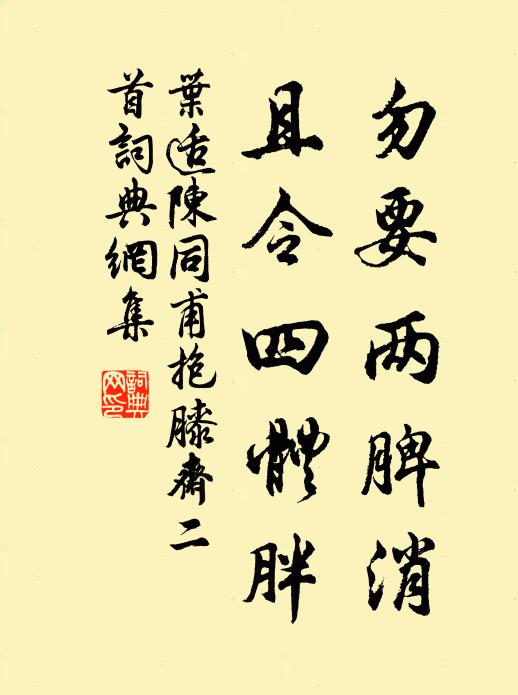 勿要两脾消
且令四體胖
葉适陳同甫抱膝齋二
首詞典網集
詞典
网印